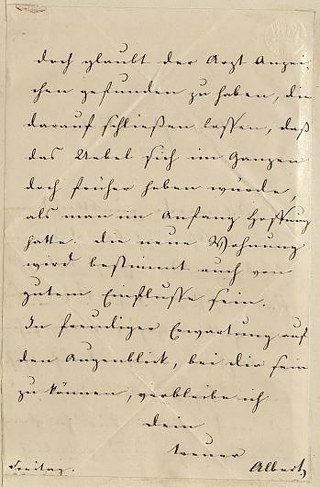 doch glaubt der Arzt Anzei-
chen gefunden zu haben, die
darauf schließen lassen, daß
das Uebel sich im Ganzen
doch früher heben würde,
als man im Anfang Hoffnung
hatte. die neue Wohnung
wird bestimmt auch von
gutem Einflusse sein.
In freudiger Erwartung auf
den Augenblick, bei dir sein
zu können, verbleibe ich
dein
treuer
Freitag. Albert